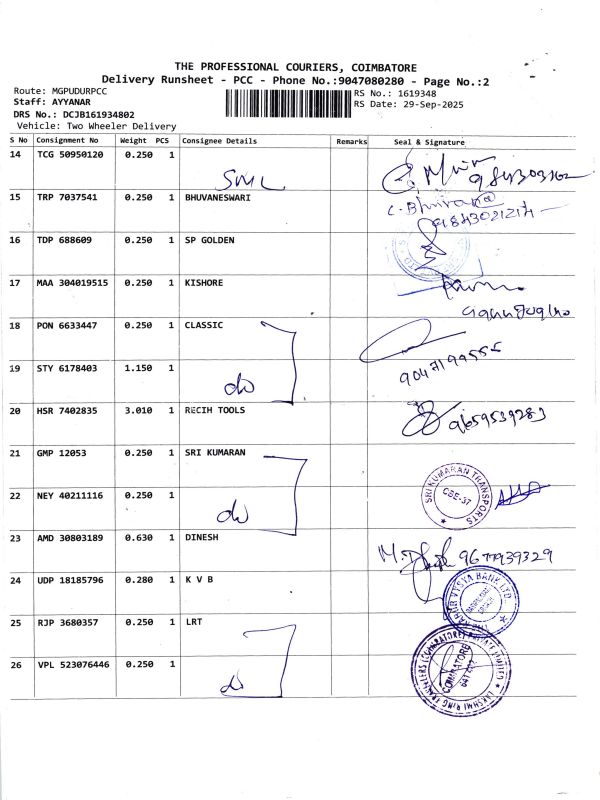 THE PROFESSIONAL COURIERS, COIMBATORE
Delivery Runsheet - PCC - Phone No.:9047080280 - Page No.:2
Route: MGPUDURPCC
Staff: AYYANAR
DRS No.: DCJB161934802
Vehicle: Two Wheeler Delivery
RS No.: 1619348
RS Date: 29-Sep-2025
S No Consignment No Weight PCS Consignee Details Remarks Seal & Signature
14 TCG 50950120 0.250 1 SML
15 TRP 7037541 0.250 1 BHUVANESWARI 9843021214
16 TDP 688609 0.250 1 SP GOLDEN
17 MAA 304019515 0.250 1 KISHORE
18 PON 6633447 0.250 1 CLASSIC
19 STY 6178403 1.150 1 do 9047199555
20 HSR 7402835 3.010 1 RECIH TOOLS 9659539283
21 GMP 12053 0.250 1 SRI KUMARAN
SRI KUMARAN TRANSPORTS
CBE-37
22 NEY 40211116 0.250 1 do
23 AMD 30803189 0.630 1 DINESH 9677939329
24 UDP 18185796 0.280 1 K V B
THE KARUR VYSYA BANK LTD.
25 RJP 3680357 0.250 1 LRT
26 VPL 523076446 0.250 1 do
LAKSHMI RING TRAVELLERS (COIMBATORE) PRIVATE LIMITED
COIMBATORE